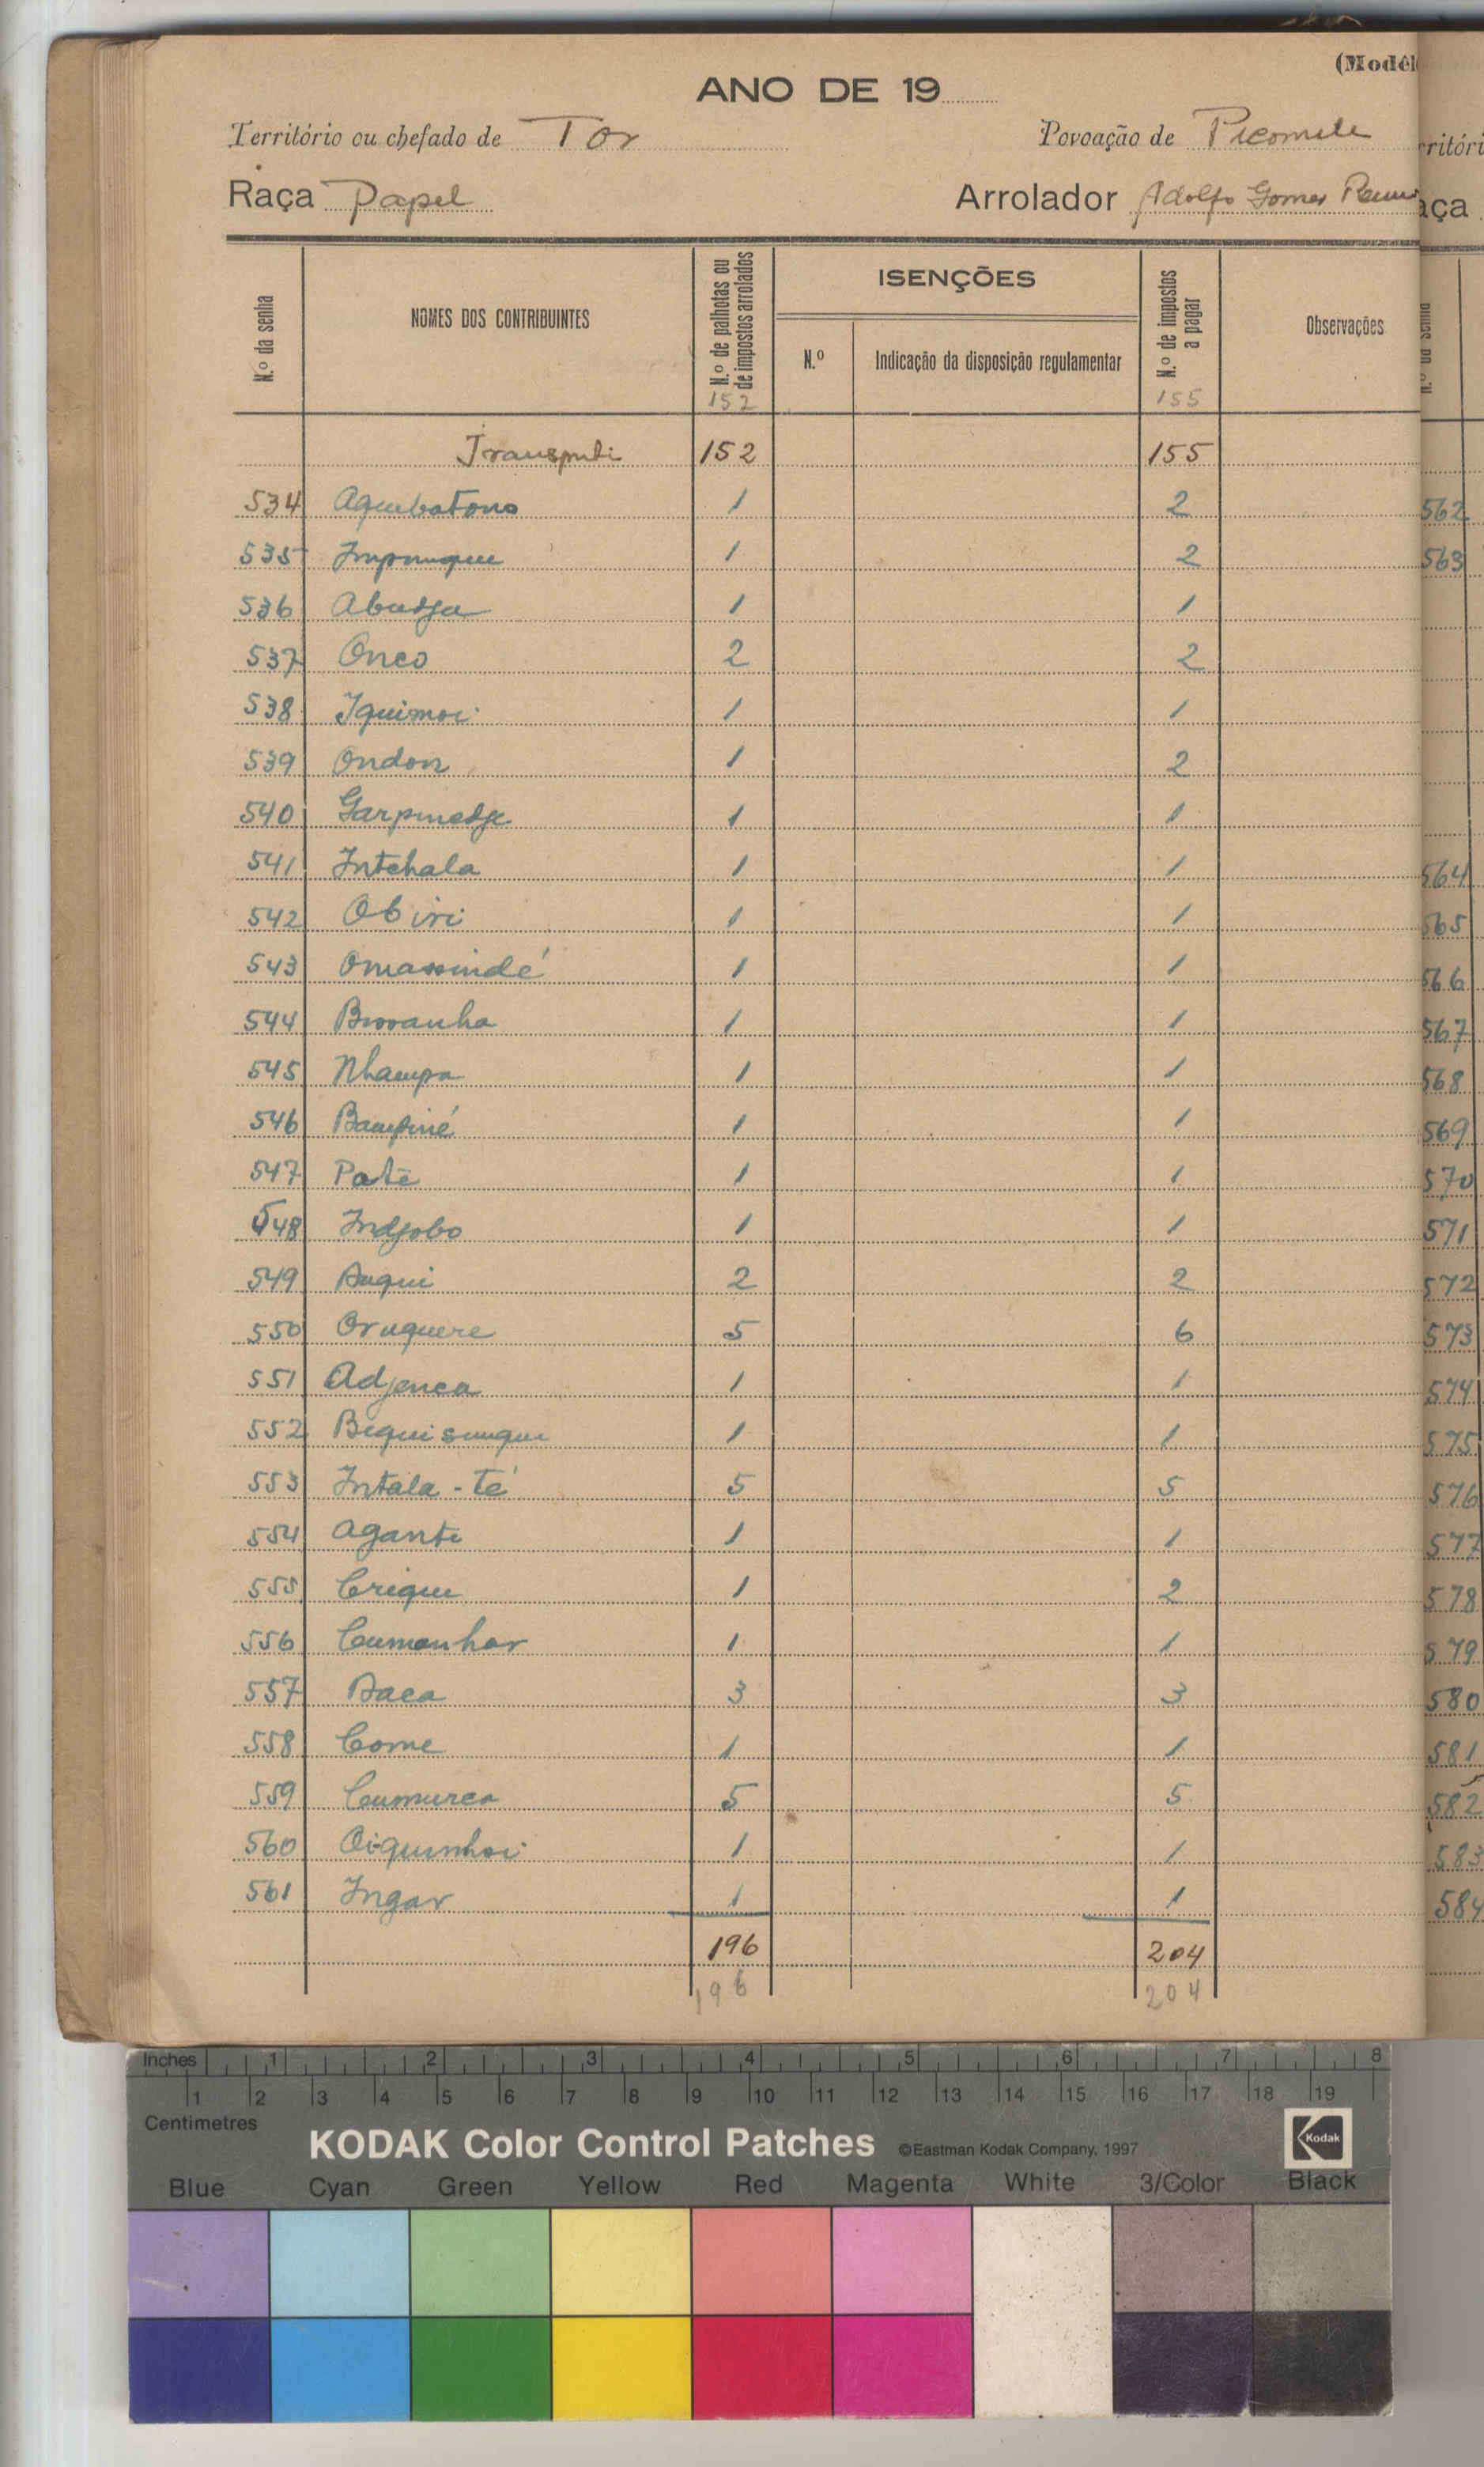 (Modêl
ANO DE 19
Território ou chefado de Tor Povoação de Picomile
Raça Papel Arrolador Adolfo Gomes
N.º da senha NOMES DOS CONTRIBUINTES N.º de palhotas ou de impostos arrolados ISENÇÕES N.º de impostos a pagar Observações
N.º Indicação da disposição regulamentar
152 155
152 155
534 Aquibatono 1 2
535 1 2
536 Abudja 1 1
537 Onco 2 2
538 Iquimoi 1 1
539 Ondon 1 2
540 Garpinedje 1 1
541 Intchala 1 1
542 Obiri 1 1
543 Omassindé 1 1
544 1 1
545 Nhampa 1 1
546 1 1
547 Paté 1 1
548 Indjobo 1 1
549 2 2
550 Oruquere 5 6
551 Adjenca 1 1
552 Biquisungue 1 1
553 Intala-té 5 5
554 Agante 1 1
555 Crique 1 2
556 Cumanhar 1 1
557 Baca 3 3
558 Come 1 1
559 Cumurca 5 5
560 Oiquinhoi 1 1
561 Ingar 1 1
196 204
196 204
ritóri
aça
562
563
564
565
566
567
568
569
570
571
572
573
574
575
576
577
578
579
580
581
582
583
584
Inches 1 2 3 4 5 6 7 8
1 2 3 4 5 6 7 8 9 10 11 12 13 14 15 16 17 18 19
Centimetres
KODAK Color Control Patches ©Eastman Kodak Company, 1997 Kodak
Blue Cyan Green Yellow Red Magenta White 3/Color Black